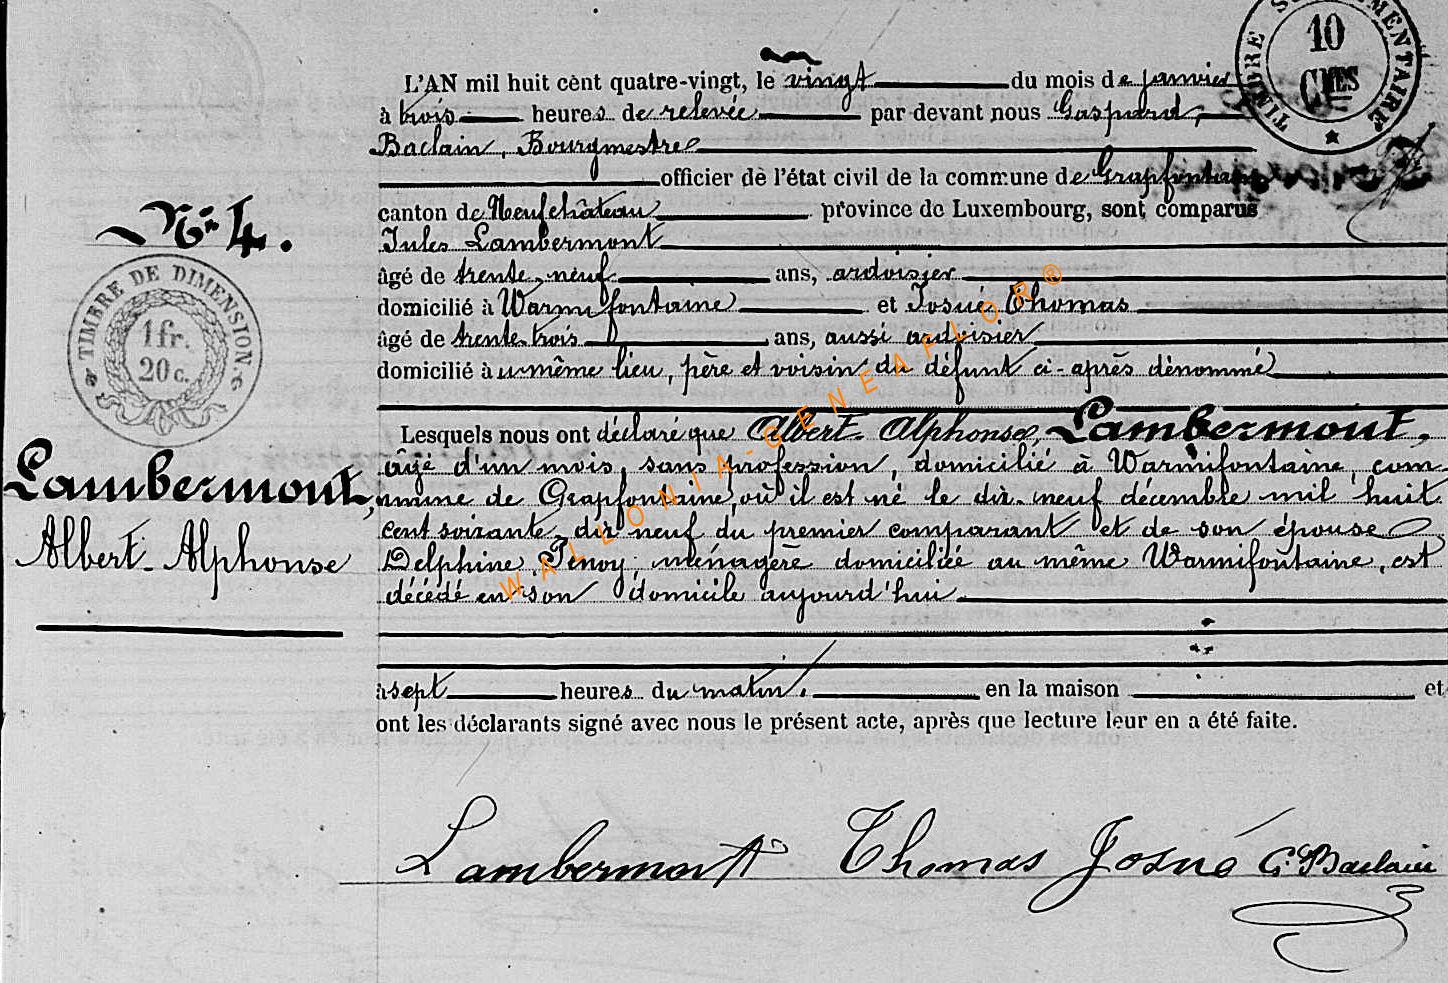 TIMBRE SUPPLÉMENTAIRE
10
CMES
L'AN mil huit cent quatre-vingt, le vingt du mois de janvier
à trois heures de relevée par devant nous Gaspard,
Baclain, Bourgmestre
officier de l'état civil de la commune de Grapfontaine
canton de Neufchâteau province de Luxembourg, sont comparus
Jules Lambermont
âgé de trente-neuf ans, ardoisier
domicilié à Warmifontaine et Josué Thomas
âgé de trente-trois ans, aussi ardoisier
domicilié au même lieu, père et voisin du défunt ci-après dénommé
Lesquels nous ont déclaré que Albert-Alphonse, Lambermont,
âgé d'un mois, sans profession, domicilié à Warmifontaine, com
mmune de Grapfontaine, où il est né le dix-neuf décembre mil huit
cent soixante-dix neuf du premier comparant et de son épouse
Delphine, ménagère domiciliée au même Warmifontaine, est
décédé en son domicile aujourd'hui
à sept heures du matin. en la maison et
ont les déclarants signé avec nous le présent acte, après que lecture leur en a été faite.
Nº 4.
TIMBRE DE DIMENSION.
1 fr.
20 c.
Lambermont,
Albert-Alphonse
WALLONIA-GENEAFLOR®
Lambermont Thomas Josué G. Baclain